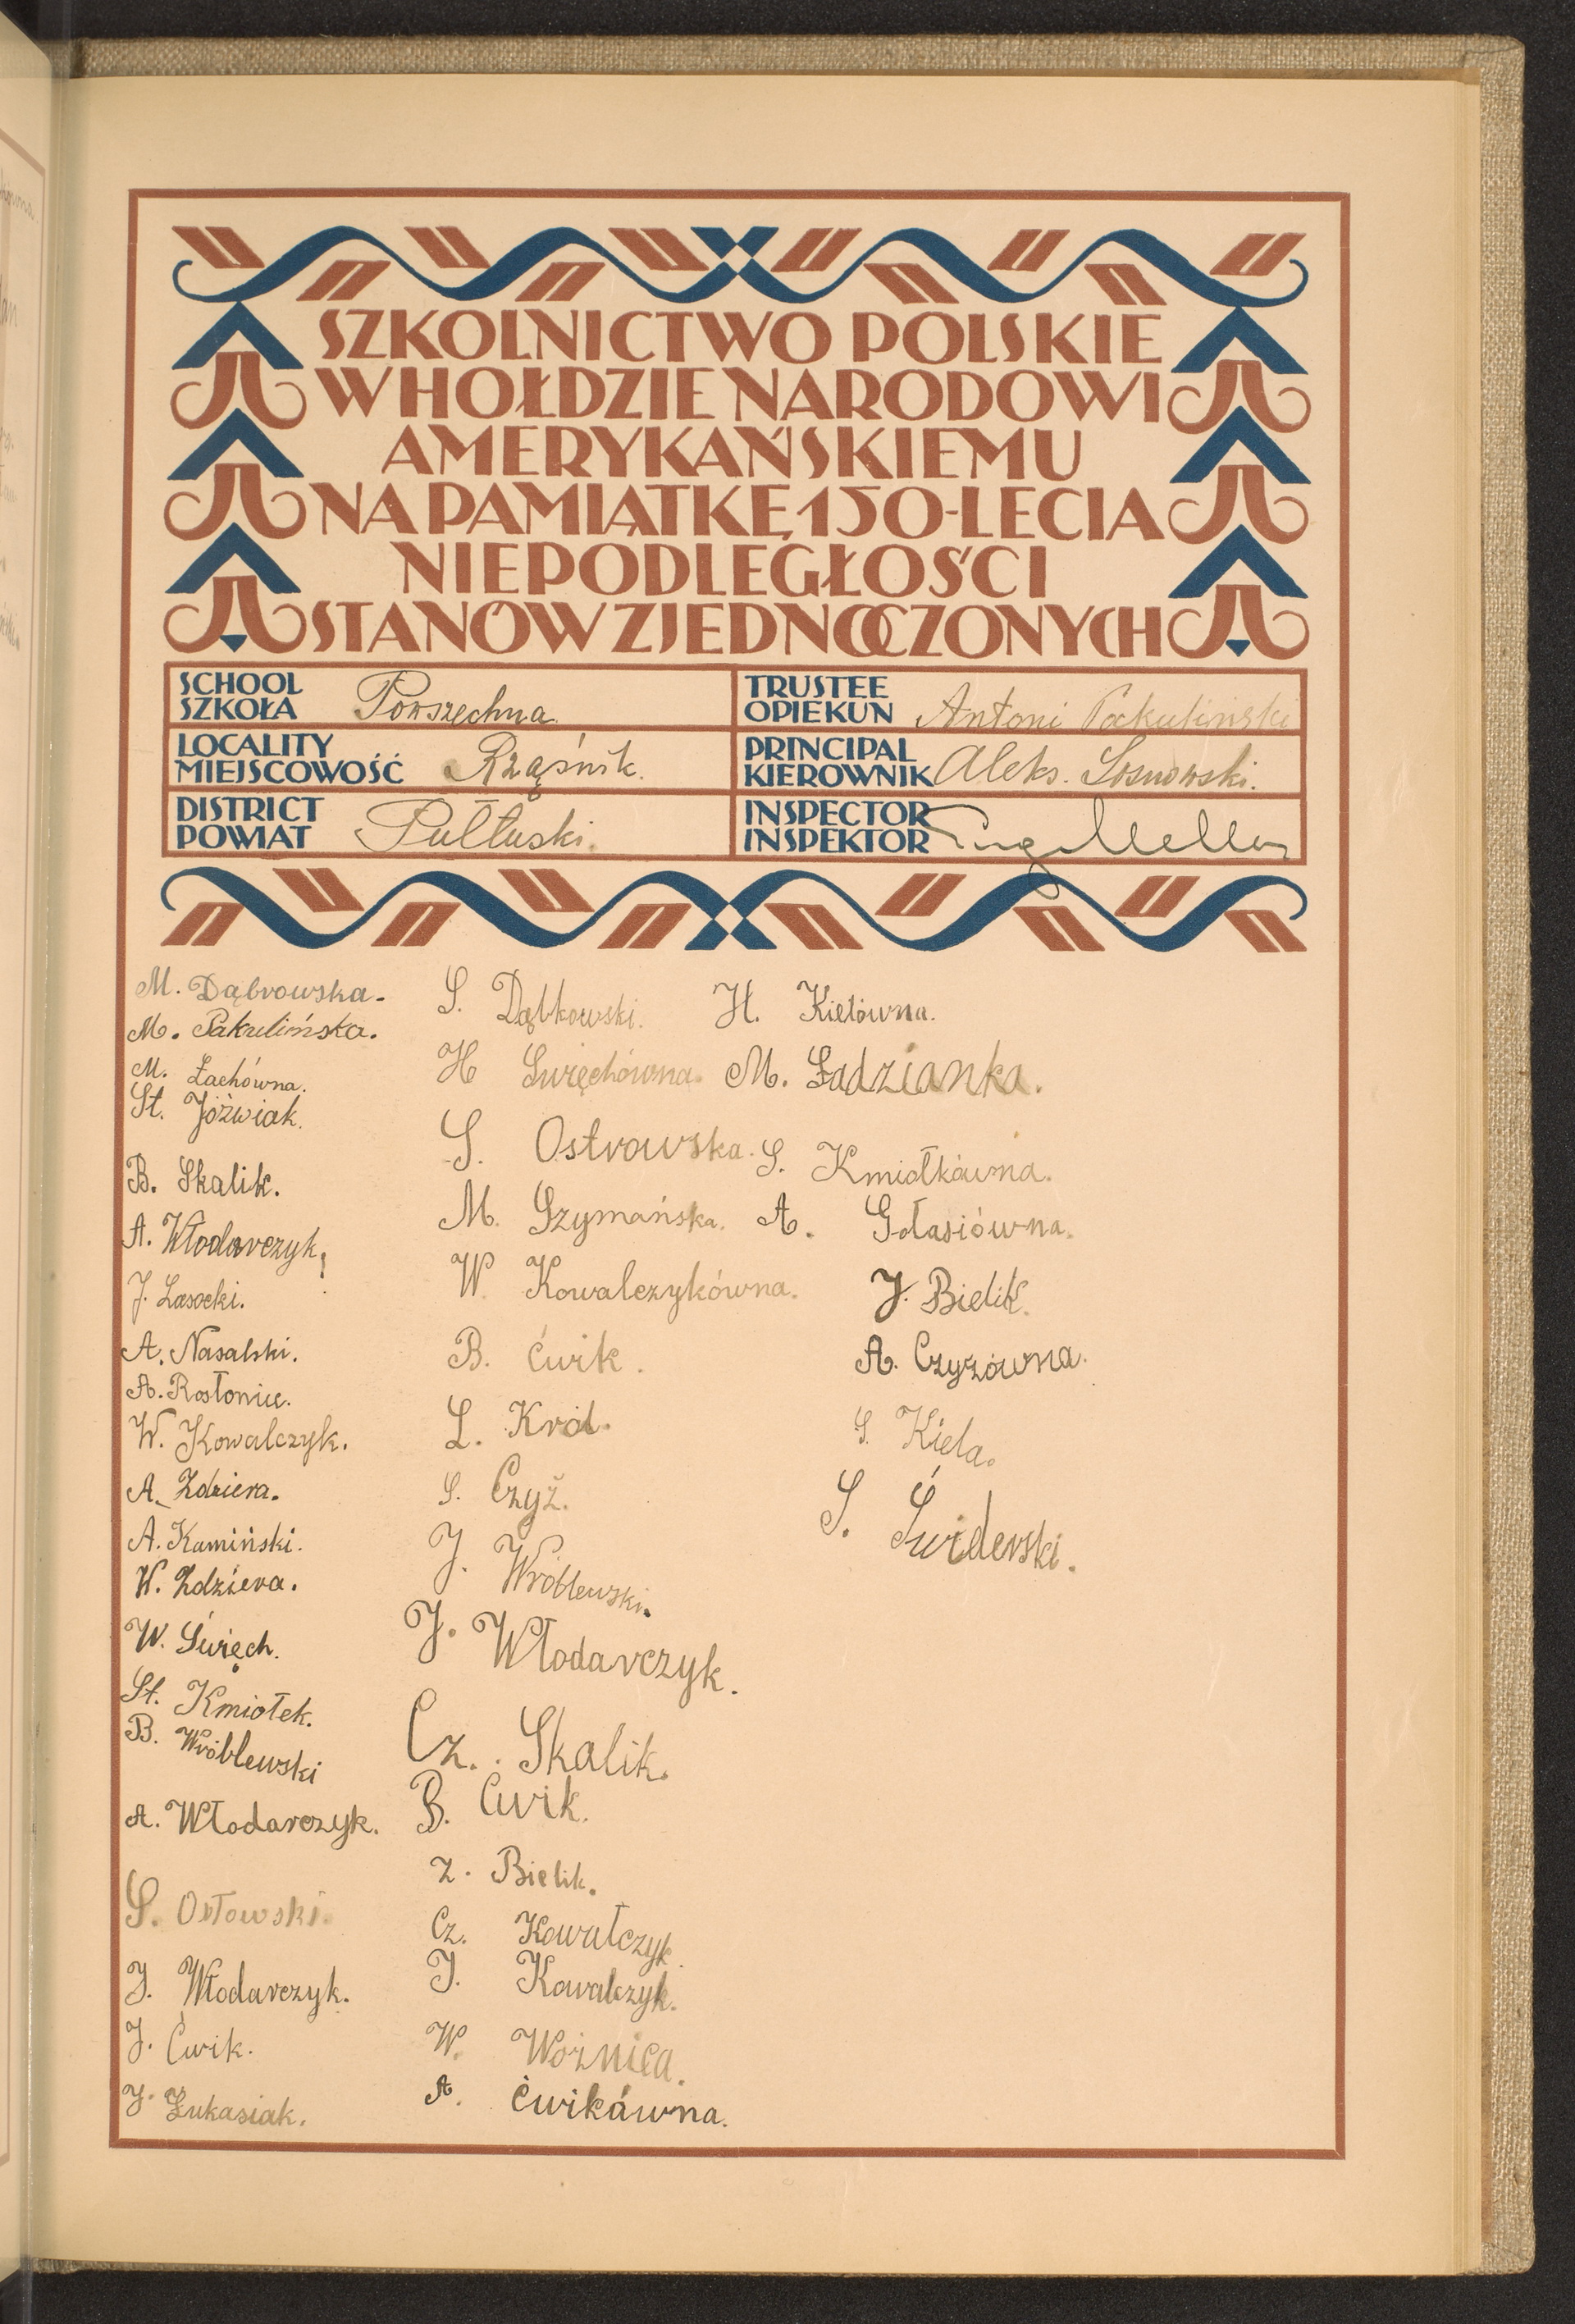 SZKOLNICTWO POLSKIE
W HOŁDZIE NARODOWI
AMERYKAŃSKIEMU
NA PAMIĄTKĘ 150-LECIA
NIEPODLEGŁOŚCI
STANÓW ZJEDNOCZONYCH
SCHOOL
SZKOŁA Powszechna
TRUSTEE
OPIEKUN Antoni Pakuliński
LOCALITY
MIEJSCOWOŚĆ Rząśnik.
PRINCIPAL
KIEROWNIK Aleks. Sosnowski.
DISTRICT
POWIAT Pułtuski.
INSPECTOR
INSPEKTOR
M. Dąbrowska.
M. Pakulińska.
M. Żachówna.
St. Jóźwiak.
B. Skalik.
A. Włodarczyk.
J. Lasocki.
A. Nasalski.
A. Rosłoniec.
W. Kowalczyk.
A. Zdziera.
A. Kamiński.
W. Zdziera.
W. Święch.
St. Kmiołek.
B. Wróblewski
A. Włodarczyk.
S. Osłowski.
J. Włodarczyk.
J. Ćwik.
J. Łukasiak.
S. Dąbkowski.
H Święchówna.
S. Ostrowska.
M. Szymańska.
W. Kowalczykówna.
B. Ćwik.
L. Król.
S. Czyż.
J. Wróblewski.
J. Włodarczyk.
Cz. Skalik.
B. Ćwik.
Z. Bielik.
Cz. Kowałczyk.
J. Kowalczyk.
W. Woźnica.
A. Ćwikówna.
H. Kielówna.
M. Ładzianka.
S. Kmiołkówna.
A. Gołasiówna.
J. Bielik.
A. Czyżówna.
S. Kiela.
S. Świderski.